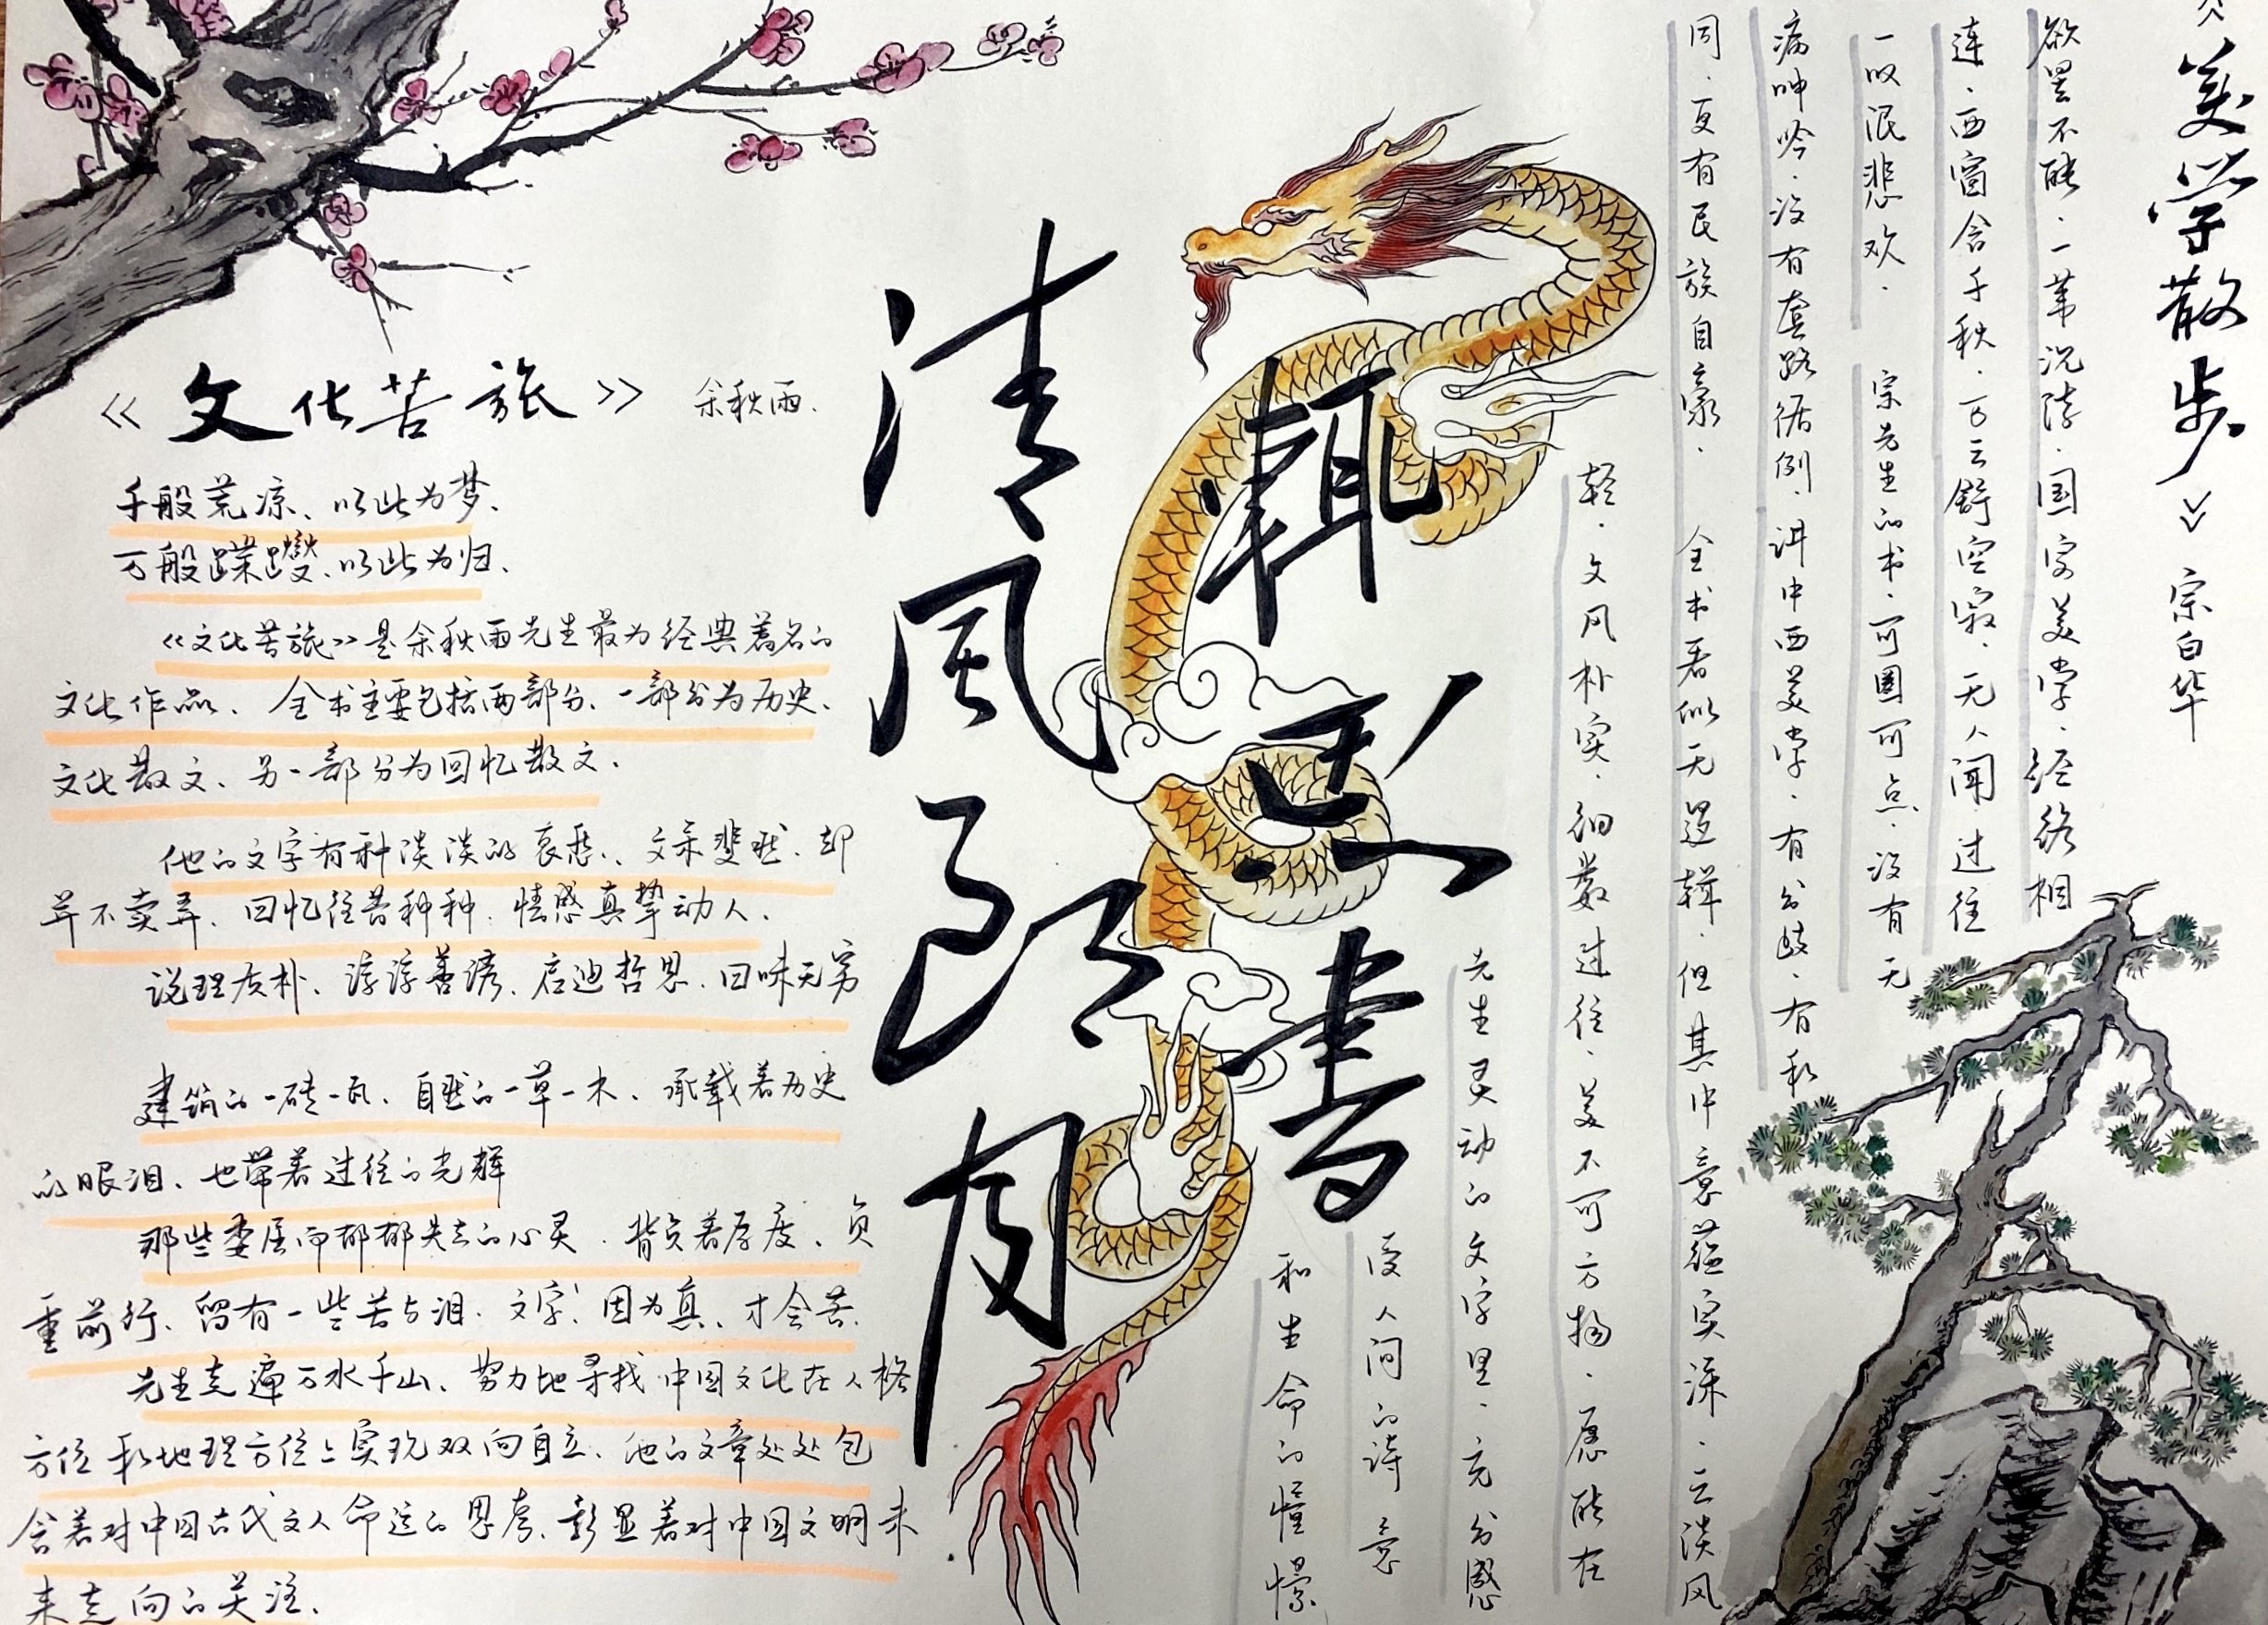 《美学散步》 宗白华
欲罢不能.一苇沉陵.国字美学.经络相
连.西窗含千秋.万云舒空寂.无人闻.过往
一叹泯悲欢.
宗先生的书.可圈可点.没有无
病呻吟.没有套路俗例.讲中西美学.有分歧.有和
同.更有民族自豪.
全书看似无逻辑.但其中意蕴实深.云淡风
轻.文风朴实.细数过往.美不可方物.愿能在
先生灵动的文字里.充分感
受人间的诗意
和生命的憧憬
清風朗月
輒書
《文化苦旅》 余秋雨.
千般荒凉、以此为梦、
万般蹀躞、以此为归、
《文化苦旅》是余秋雨先生最为经典著名的
文化作品、全书主要包括两部分、一部分为历史、
文化散文、另一部分为回忆散文、
他的文字有种淡淡的哀愁、文采斐然、却
并不卖弄、回忆往昔种种、情感真挚动人、
说理质朴、谆谆善诱、启迪哲思、回味无穷
建筑的一砖一瓦、自然的一草一木、承载着历史
的眼泪、也带着过往的光辉
那些委屈而郁郁失去的心灵、背负着厚度、负
重前行、留有一些苦与泪、文字、因为真、才会苦.
先生走遍万水千山、努力地寻找中国文化在人格
方位和地理方位上实现双向自立、他的文章处处包
含着对中国古代文人命运的思考、彰显着对中国文明未
来走向的关注、